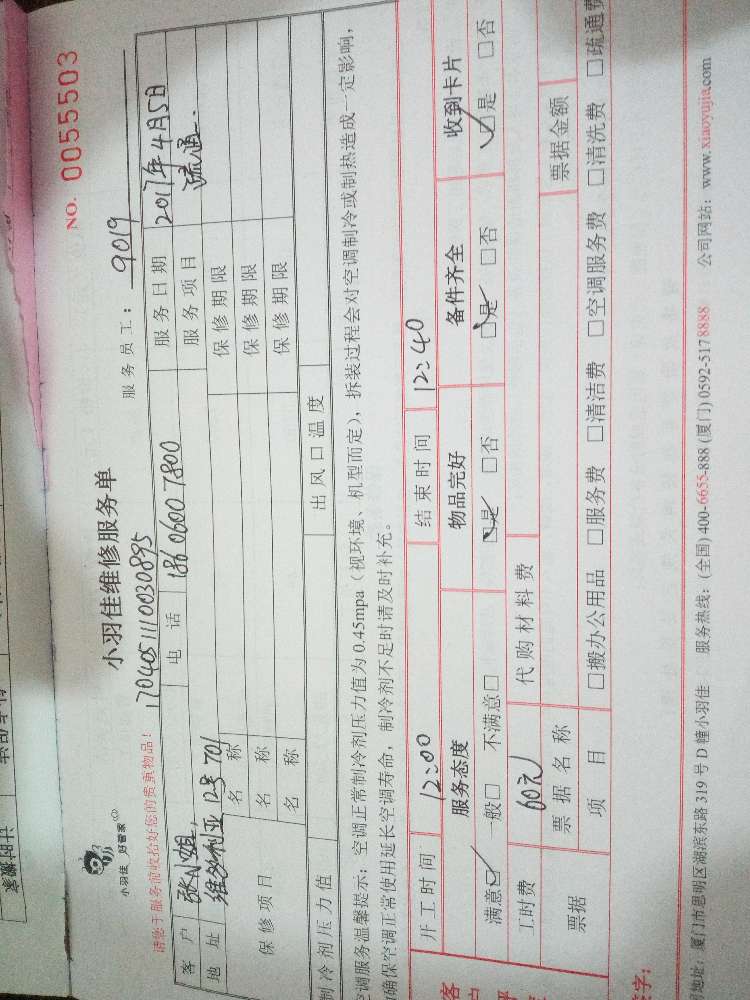 NO. 0055503
小羽佳 好管家
小羽佳维修服务单
服务员工：9019
请您于服务前收拾好您的贵重物品！
17040511110030895
客户 张小姐 电话 18606007800 服务日期 2017年4月5日
地址 维多利亚12号701 服务项目 疏通.
保修项目 名称 保修期限
名称 保修期限
名称 保修期限
制冷剂压力值 出风口温度
空调服务温馨提示：空调正常制冷剂压力值为0.45mpa（视环境、机型而定），拆装过程会对空调制冷或制热造成一定影响，
确保空调正常使用延长空调寿命，制冷剂不足时请及时补充。
开工时间 12:00 结束时间 12:40
服务态度 物品完好 备件齐全 收到卡片
满意☑ 一般□ 不满意□ ☑是 □否 ☑是 □否 ☑是 □否
工时费 60元 代购材料费
票据 票据名称 票据金额
项目 □搬办公用品 □服务费 □清洁费 □空调服务费 □清洗费 □疏通费
签字：
地址：厦门市思明区湖滨东路319号D幢小羽佳 服务热线：(全国)400-6655-888 (厦门)0592-5178888 公司网站：www.xiaoyujia.com